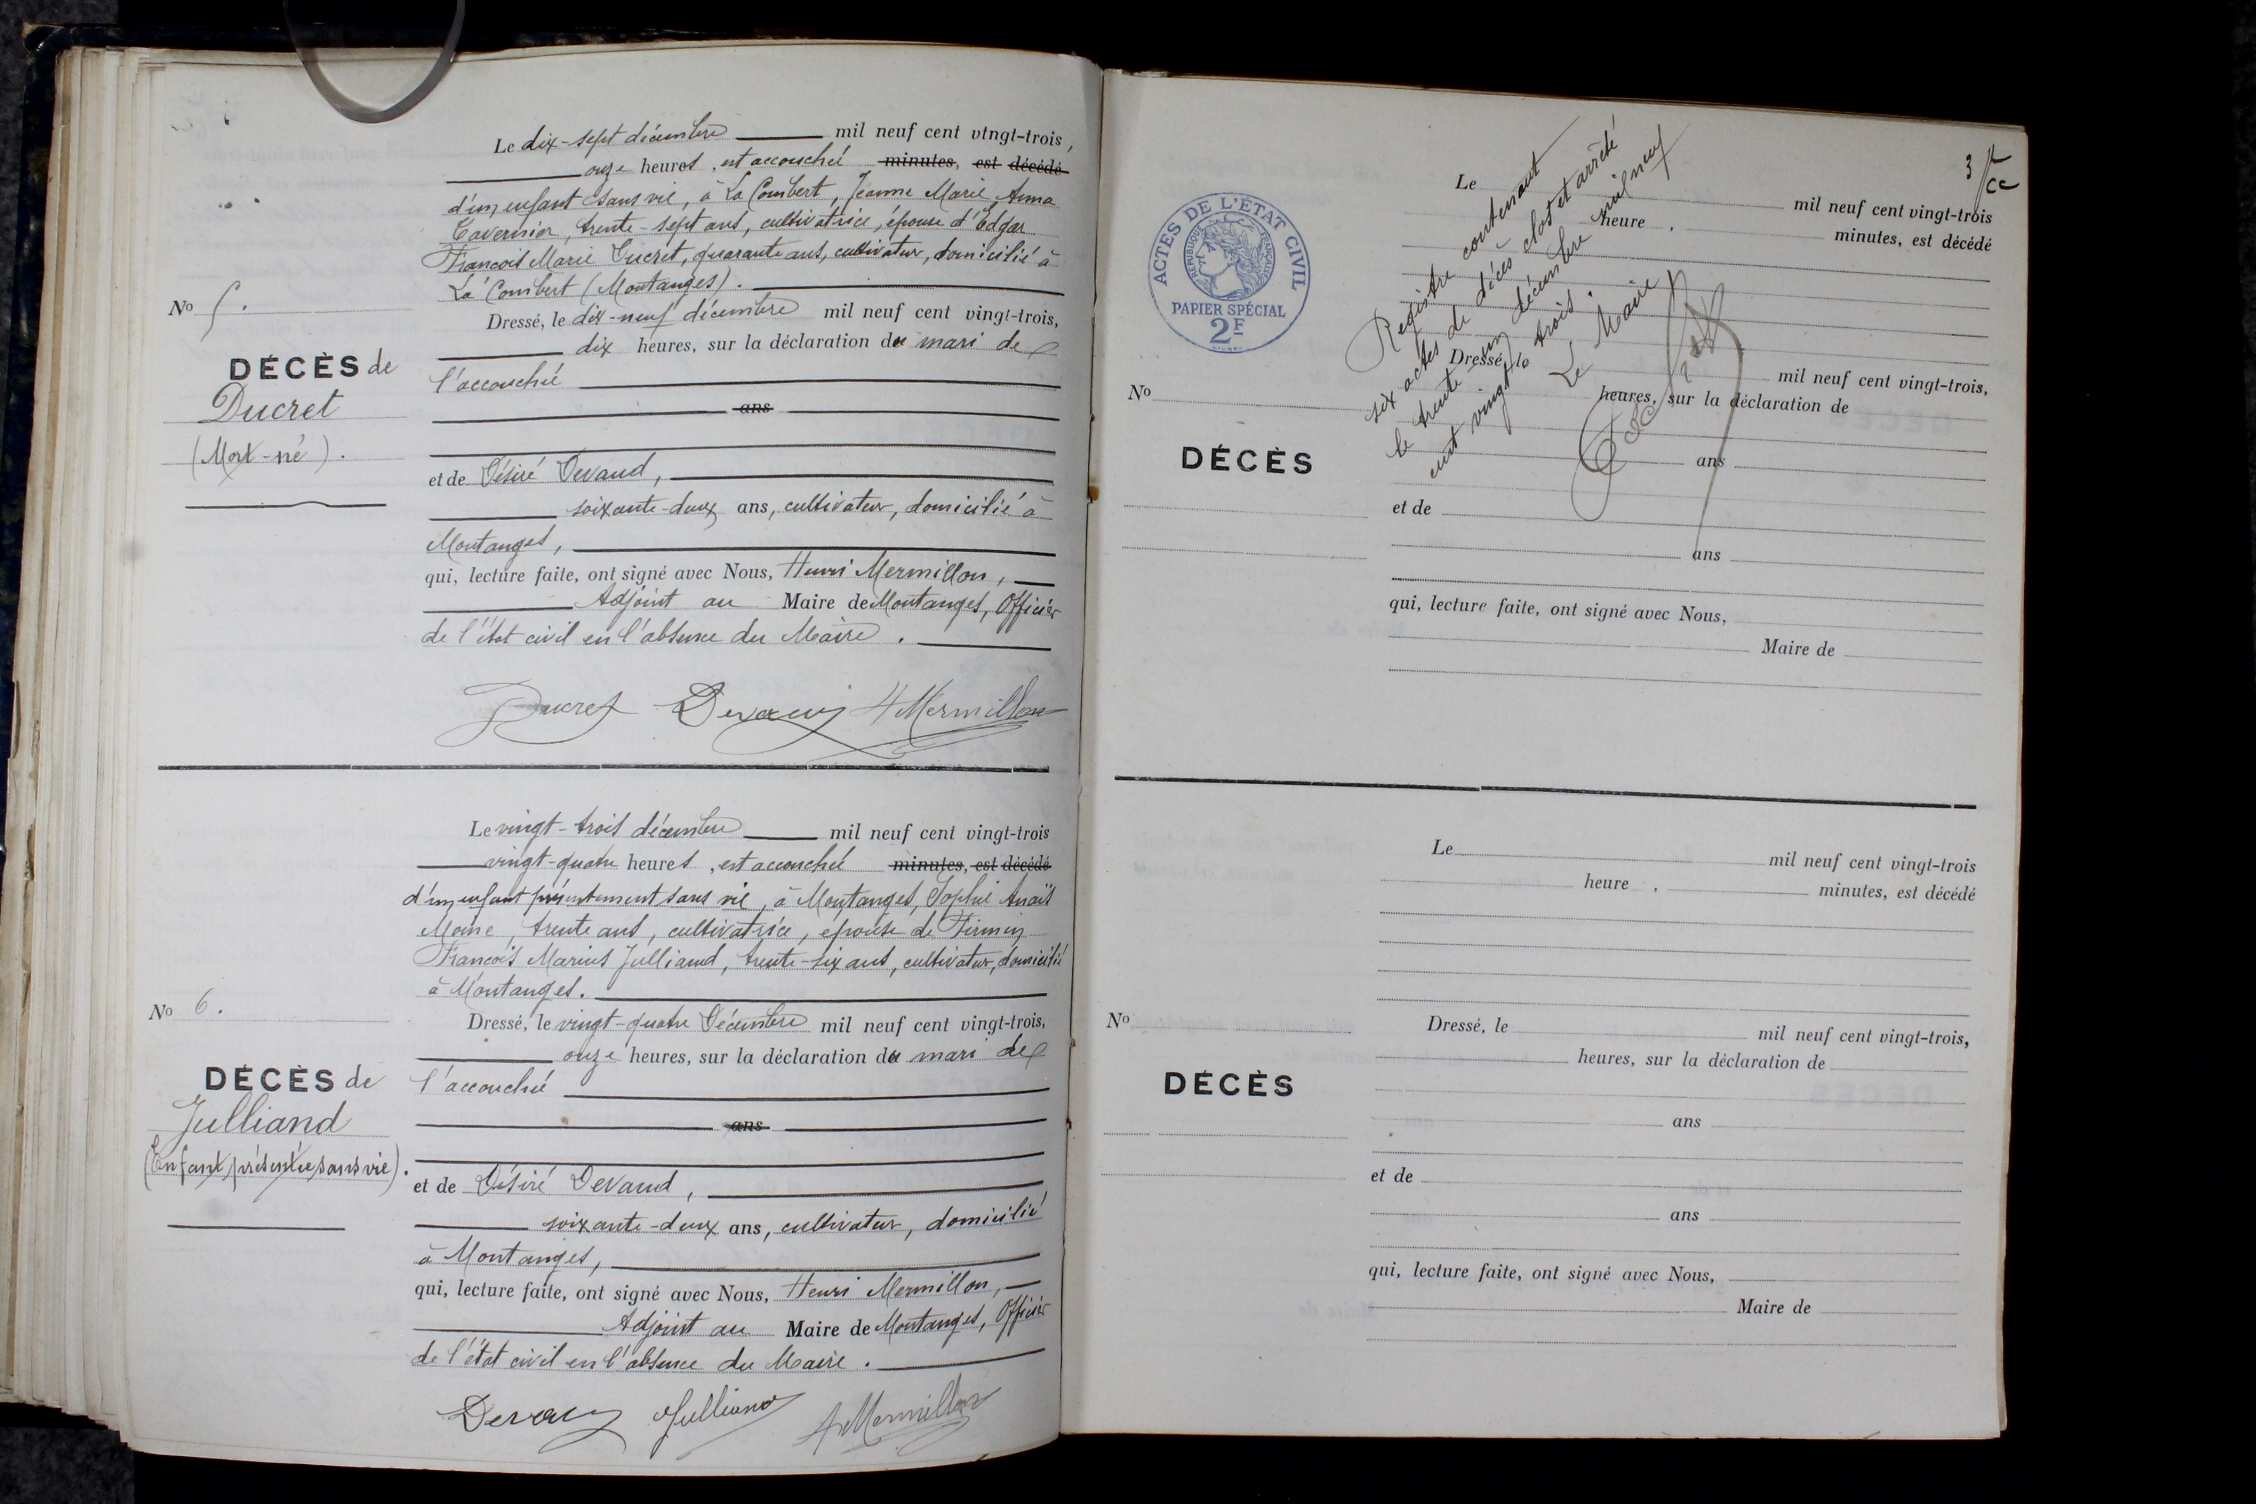 Le dix-sept décembre mil neuf cent vingt-trois,
onze heures, est accouchée minutes, est décédé
d'un enfant sans vie, à La Combert, Jeanne Marie Anna
Tavernier, trente-sept ans, cultivatrice, épouse d'Edgar
François Marie Ducret, quarante ans, cultivateur, domicilié à
La Combert (Montanges).
No 5.
Dressé, le dix-neuf décembre mil neuf cent vingt-trois,
dix heures, sur la déclaration du mari de
DÉCÈS de
l'accouchée
Ducret
ans
(Mort-né).
et de Désiré Devaud,
soixante-deux ans, cultivateur, domicilié à
Montanges,
qui, lecture faite, ont signé avec Nous, Henri Mermillon,
Adjoint au Maire de Montanges, Officier
de l'état civil en l'absence du Maire.
Ducret Devaud H Mermillon
Le vingt-trois décembre mil neuf cent vingt-trois
vingt-quatre heures, est accouchée minutes, est décédé
d'un enfant présentement sans vie, à Montanges, Sophie Anaïs
Moine, trente ans, cultivatrice, épouse de Firmin
François Marius Julliand, trente-six ans, cultivateur, domicilié
à Montanges.
No 6.
Dressé, le vingt-quatre Décembre mil neuf cent vingt-trois,
onze heures, sur la déclaration du mari de
DÉCÈS de
l'accouchée
Julliand
ans
(Enfant présenté sans vie).
et de Désiré Devaud,
soixante-deux ans, cultivateur, domicilié
à Montanges,
qui, lecture faite, ont signé avec Nous, Henri Mermillon,
Adjoint au Maire de Montanges, Officier
de l'état civil en l'absence du Maire.
Devaud Julliand H Mermillon
3
Registre contenant
six actes de décès clos et arrêté
le trente un décembre mil neuf
cent vingt trois.
Le Maire
ACTES DE L'ÉTAT CIVIL
RÉPUBLIQUE FRANÇAISE
PAPIER SPÉCIAL
2F
Le mil neuf cent vingt-trois
heure . minutes, est décédé
Dressé, le mil neuf cent vingt-trois,
No
heures, sur la déclaration de
DÉCÈS
ans
et de
ans
qui, lecture faite, ont signé avec Nous,
Maire de
Le mil neuf cent vingt-trois
heure . minutes, est décédé
No
Dressé, le mil neuf cent vingt-trois,
heures, sur la déclaration de
DÉCÈS
ans
et de
ans
qui, lecture faite, ont signé avec Nous,
Maire de